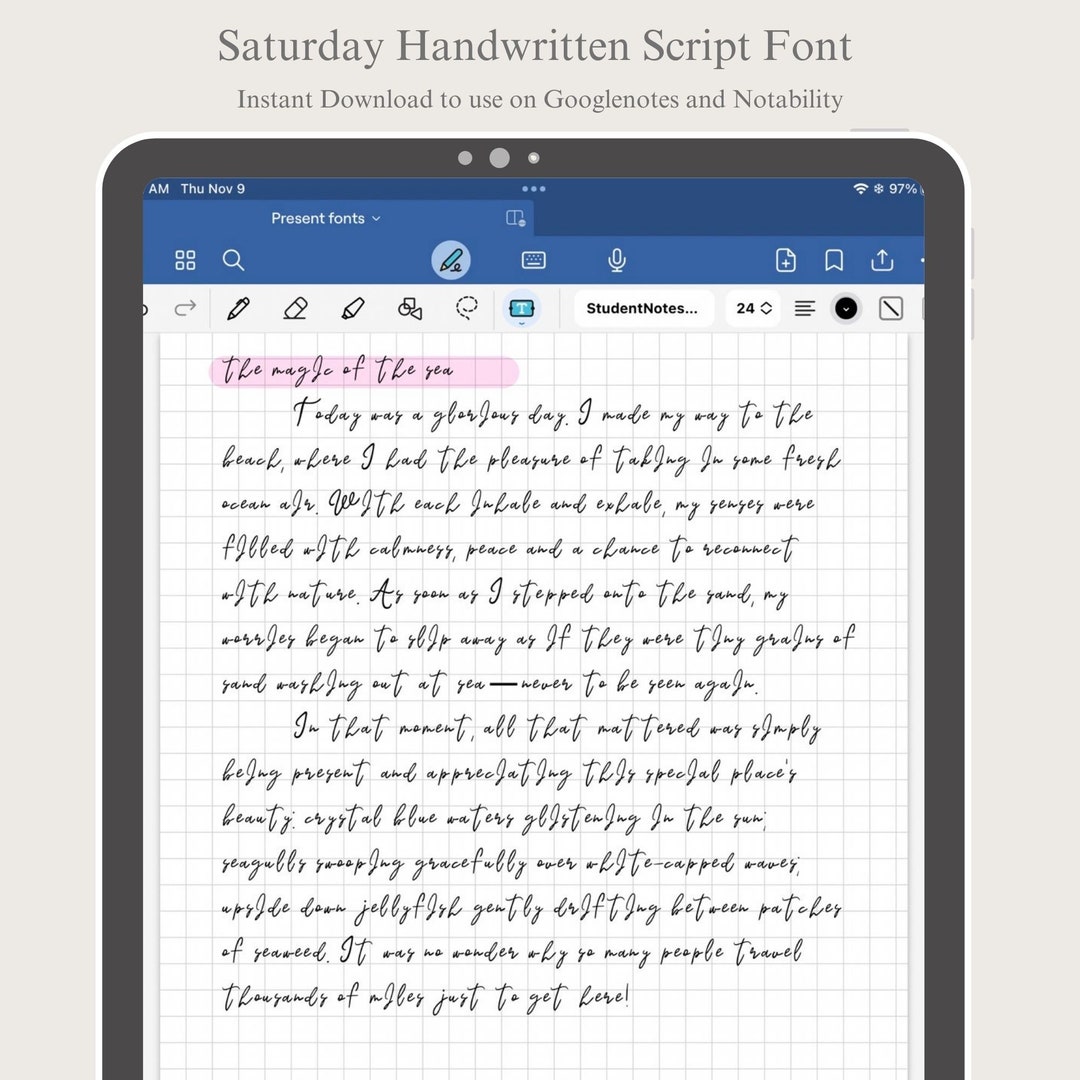 Saturday Handwritten Script Font
Instant Download to use on Googlenotes and Notability
AM Thu Nov 9
97%
Present fonts
StudentNotes...
24
the magIc of the sea
Today was a glorIous day. I made my way to the
beach, where I had the pleasure of takIng In some fresh
ocean aIr. WIth each Inhale and exhale, my senses were
fIlled wIth calmness, peace and a chance to reconnect
wIth nature. As soon as I stepped onto the sand, my
worrIes began to slIp away as If they were tIny graIns of
sand washIng out at sea—never to be seen agaIn.
In that moment, all that mattered was sImply
beIng present and apprecIatIng thIs specIal place's
beauty: crystal blue waters glIstenIng In the sun;
seagulls swoopIng gracefully over whIte-capped waves;
upsIde down jellyfIsh gently drIftIng between patches
of seaweed. It was no wonder why so many people travel
thousands of mIles just to get here!